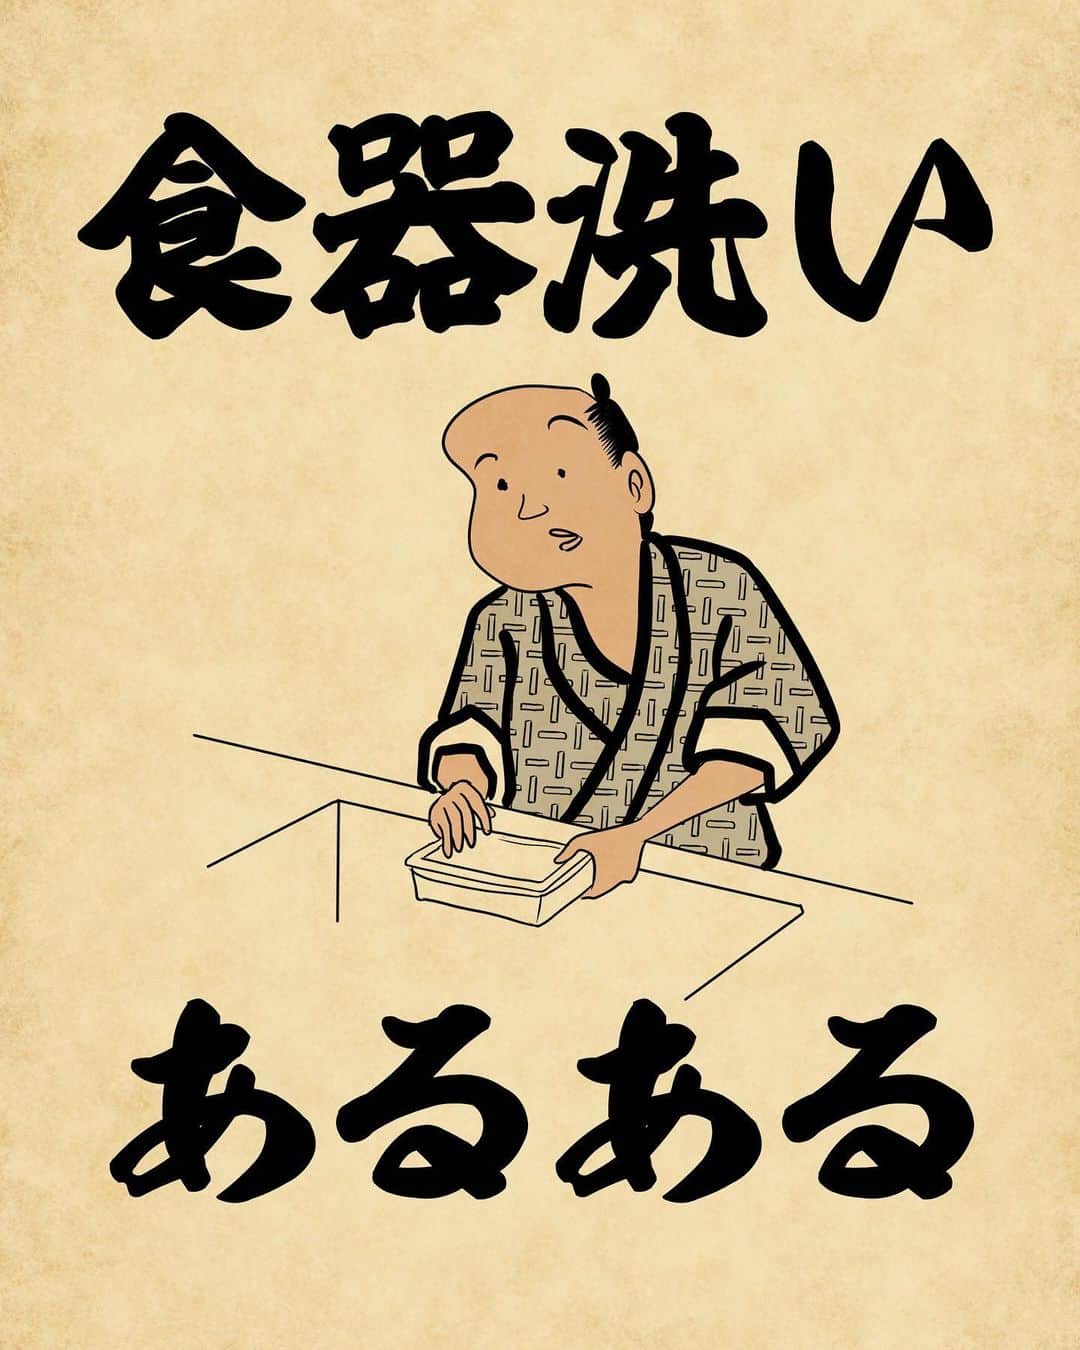 食器洗い
あるある